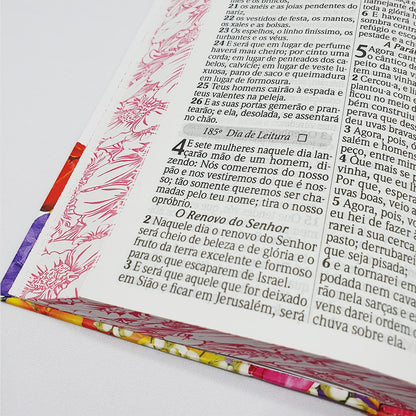 21 os anéis e as joias pendentes do
nariz,
22 os vestidos de festa, os mantos,
os xales e as bolsas.
23 Os espelhos, o linho finíssimo, os
turbantes e os véus.
24 E será que em lugar de perfume
haverá mau cheiro; por cinto uma
corda; em lugar de penteados de ca-
belos, calvície; em lugar de veste lu-
xuosa, pano de saco e queimadura
em lugar de formosura.
25 Teus homens cairão à espada e
teus valentes na peleja.
26 E as suas portas gemerão e pran-
tearão; e ela, desolada, se assentará
no chão.
185º Dia de Leitura
4 E sete mulheres naquele dia lan-
çarão mão de um homem, di-
zendo: Nós comeremos do nosso
pão e nos vestiremos do que é nos-
so; tão somente queremos ser cha-
madas pelo teu nome; tira o nosso
opróbrio.
O Renovo do Senhor
2 Naquele dia o renovo do Senhor
será cheio de beleza e de glória e o
fruto da terra excelente e formoso
para os que escaparem de Israel.
3 E será que aquele que for deixado
em Sião e ficar em Jerusalém, será
toda a glória
6 E
sombra con
refúgio e es
A Pará
5 Agora cant
o cântico d
peito da sua
tem uma vinh
2 Cercou-a, e li
tou
ficou no meio
bém construiu
perava que de
deu uvas brava
3 Agora, pois, ó
salém e home
peço, entre mim
4 Que mais se p
vinha, que eu l
Por que, esper
uvas boas, veio
5 Agora, pois, v
eu hei de fazer
tirarei a sua cer
pasto; derrubare
que seja pisada;
6 e a tornarei
podada nem cava
rão nela sarças e e
vens darei ordem
chuva sobre ela.